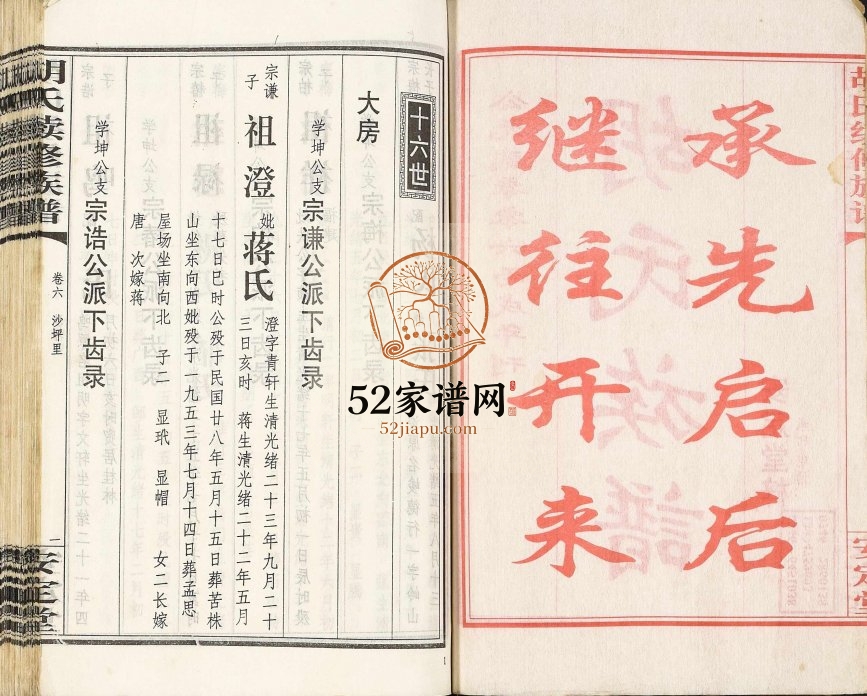 承先启后
继往开来
安定堂
十六世
大房
学坤公支 宗谦公派下齿录
宗谦子 祖澄 妣 蒋氏
澄字青轩生清光绪二十三年九月二十
三日亥时 蒋生清光绪二十二年五月
十七日巳时公殁于民国廿八年五月十五日葬苦株
山坐东向西妣殁于一九五三年七月十四日葬孟思
屋场坐南向北 子二 显珉 显帽 女二长嫁
唐 次嫁蒋
学坤公支 宗诰公派下齿录
胡氏续修族谱
卷六 沙坪里
一
安定堂
52家谱网
52jiapu.com